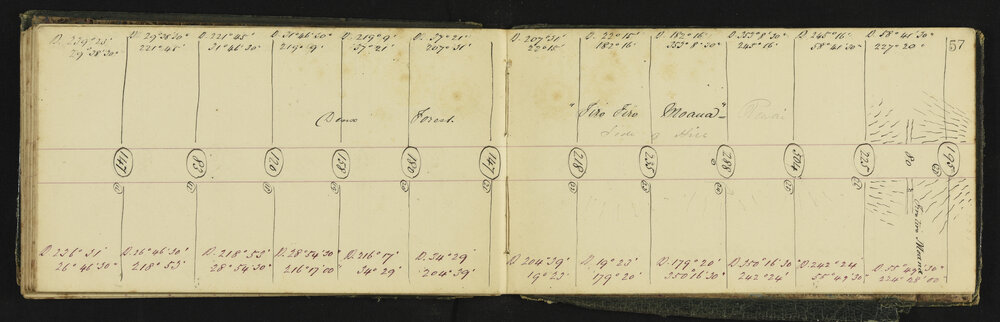 D. 29°38'30" D. 221°45' D. 31°46'30" D. 219°9' D. 37°21' D. 207°31' D. 22°15' D. 182°16' D. 353°8'30" D. 245°16' D. 58°41'30" 57
29°38'30" 221°45' 31°46'30" 219°9' 37°21' 207°31' 22°15' 182°16' 353°8'30" 245°16' 58°41'30" 227°20'
Forest "Tiro Tiro Moana"
Side of Hill
147 83 120 158 180 147 218 235 288 304 225 80 195
D. 236°31' D. 26°46'30" D. 218°53' D. 28°54'30" D. 216°17' D. 34°29' D. 204°39' D. 19°23' D. 179°20' D. 350°16'30" D. 242°24' D. 55°49'30"
26°46'30" 218°53' 28°54'30" 216°17'00" 34°29' 204°39' 19°23' 179°20' 350°16'30" 242°24' 55°49'30" 224°28'00"